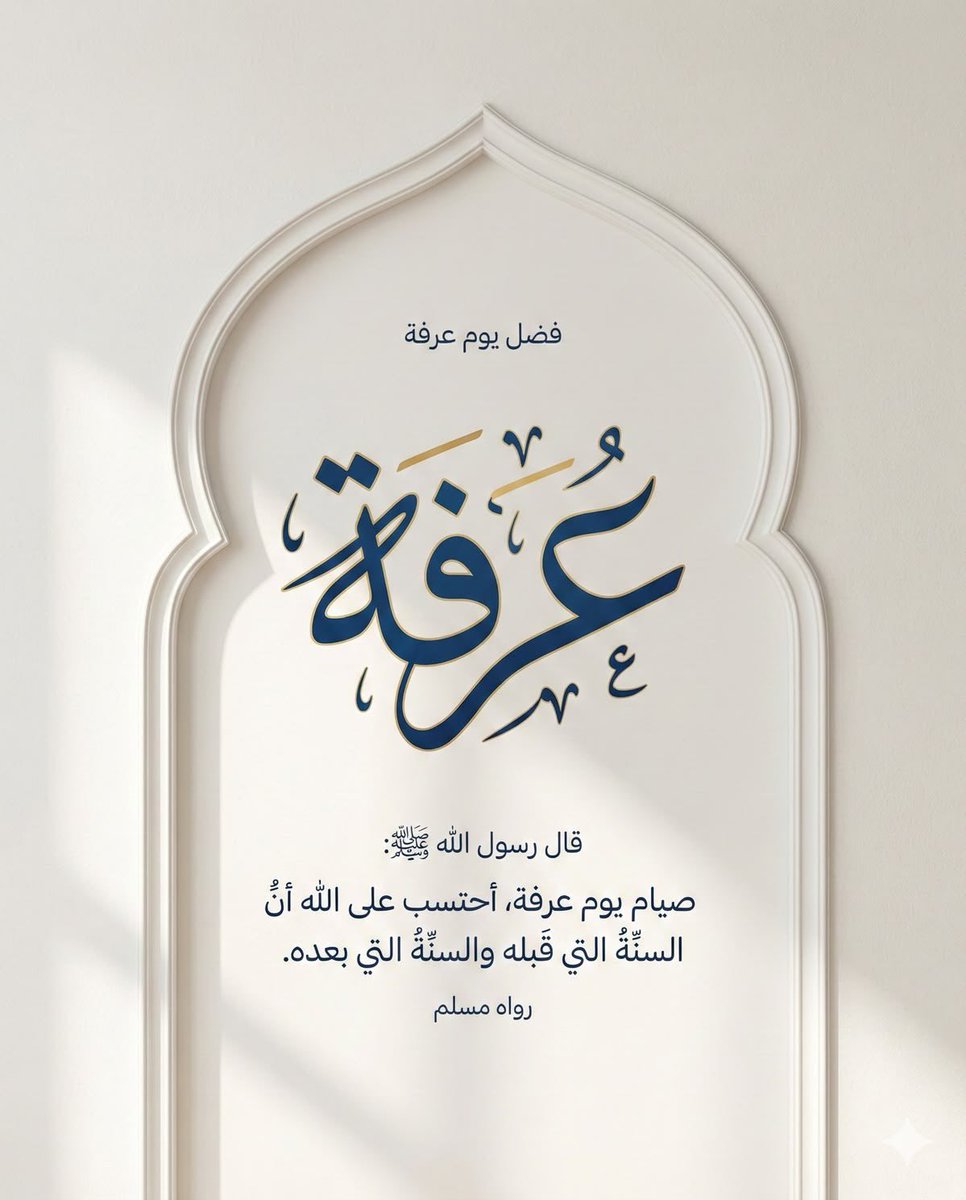 فضل يوم عرفة
عُرفَة
قال رسول الله ﷺ:
صيام يوم عرفة، أحتسب على الله أنُّ
السنِّةُ التي قَبله والسنِّةُ التي بعده.
رواه مسلم